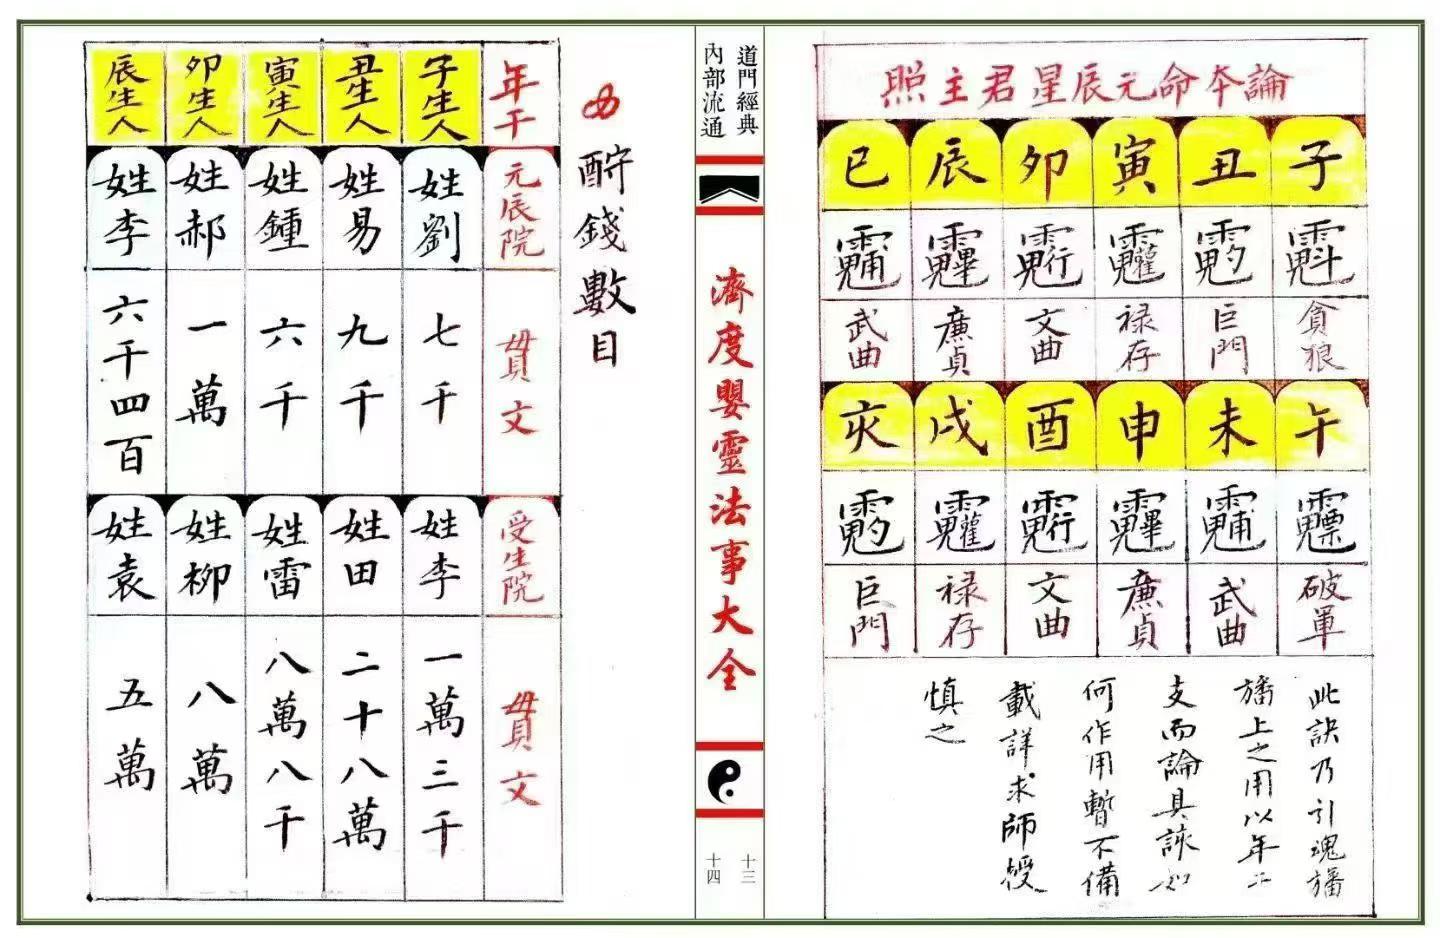 論本命元辰星君主照
子 丑 寅 卯 辰 巳
貪狼 巨門 禄存 文曲 廉貞 武曲
午 未 申 酉 戌 亥
破軍 武曲 廉貞 文曲 禄存 巨門
此訣乃引魂旛
旛上之用以年
支而論具訣如
何作用暫不備
載詳求師授
慎之
道門經典
內部流通
濟度嬰靈法事大全
十三
十四
酧錢數目
年干 子生人 丑生人 寅生人 卯生人 辰生人
元辰院 姓劉 姓易 姓鍾 姓郝 姓李
貫文 七千 九千 六千 一萬 六千四百
受生院 姓李 姓田 姓雷 姓柳 姓袁
貫文 一萬三千 二十八萬 八萬八千 八萬 五萬